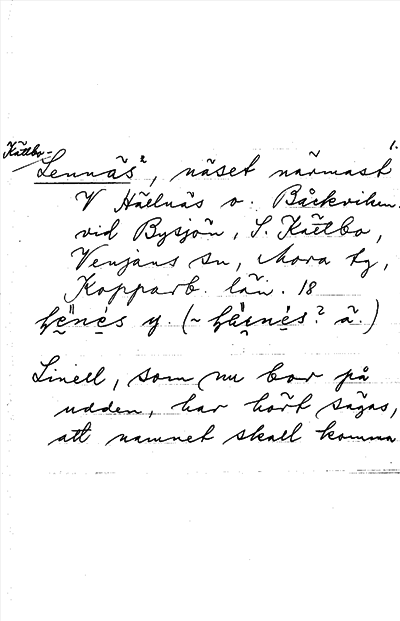 Kättbo-
1.
Lennäs², näset närmast
V Hällnäs o. Båckviken
vid Bysjön, S. Kättbo,
Venjans sn, Mora tg,
Kopparb. län. 18
y. (~ ? ä.)
Linell, som nu bor på
udden, har hört sägas,
att namnet skall komma